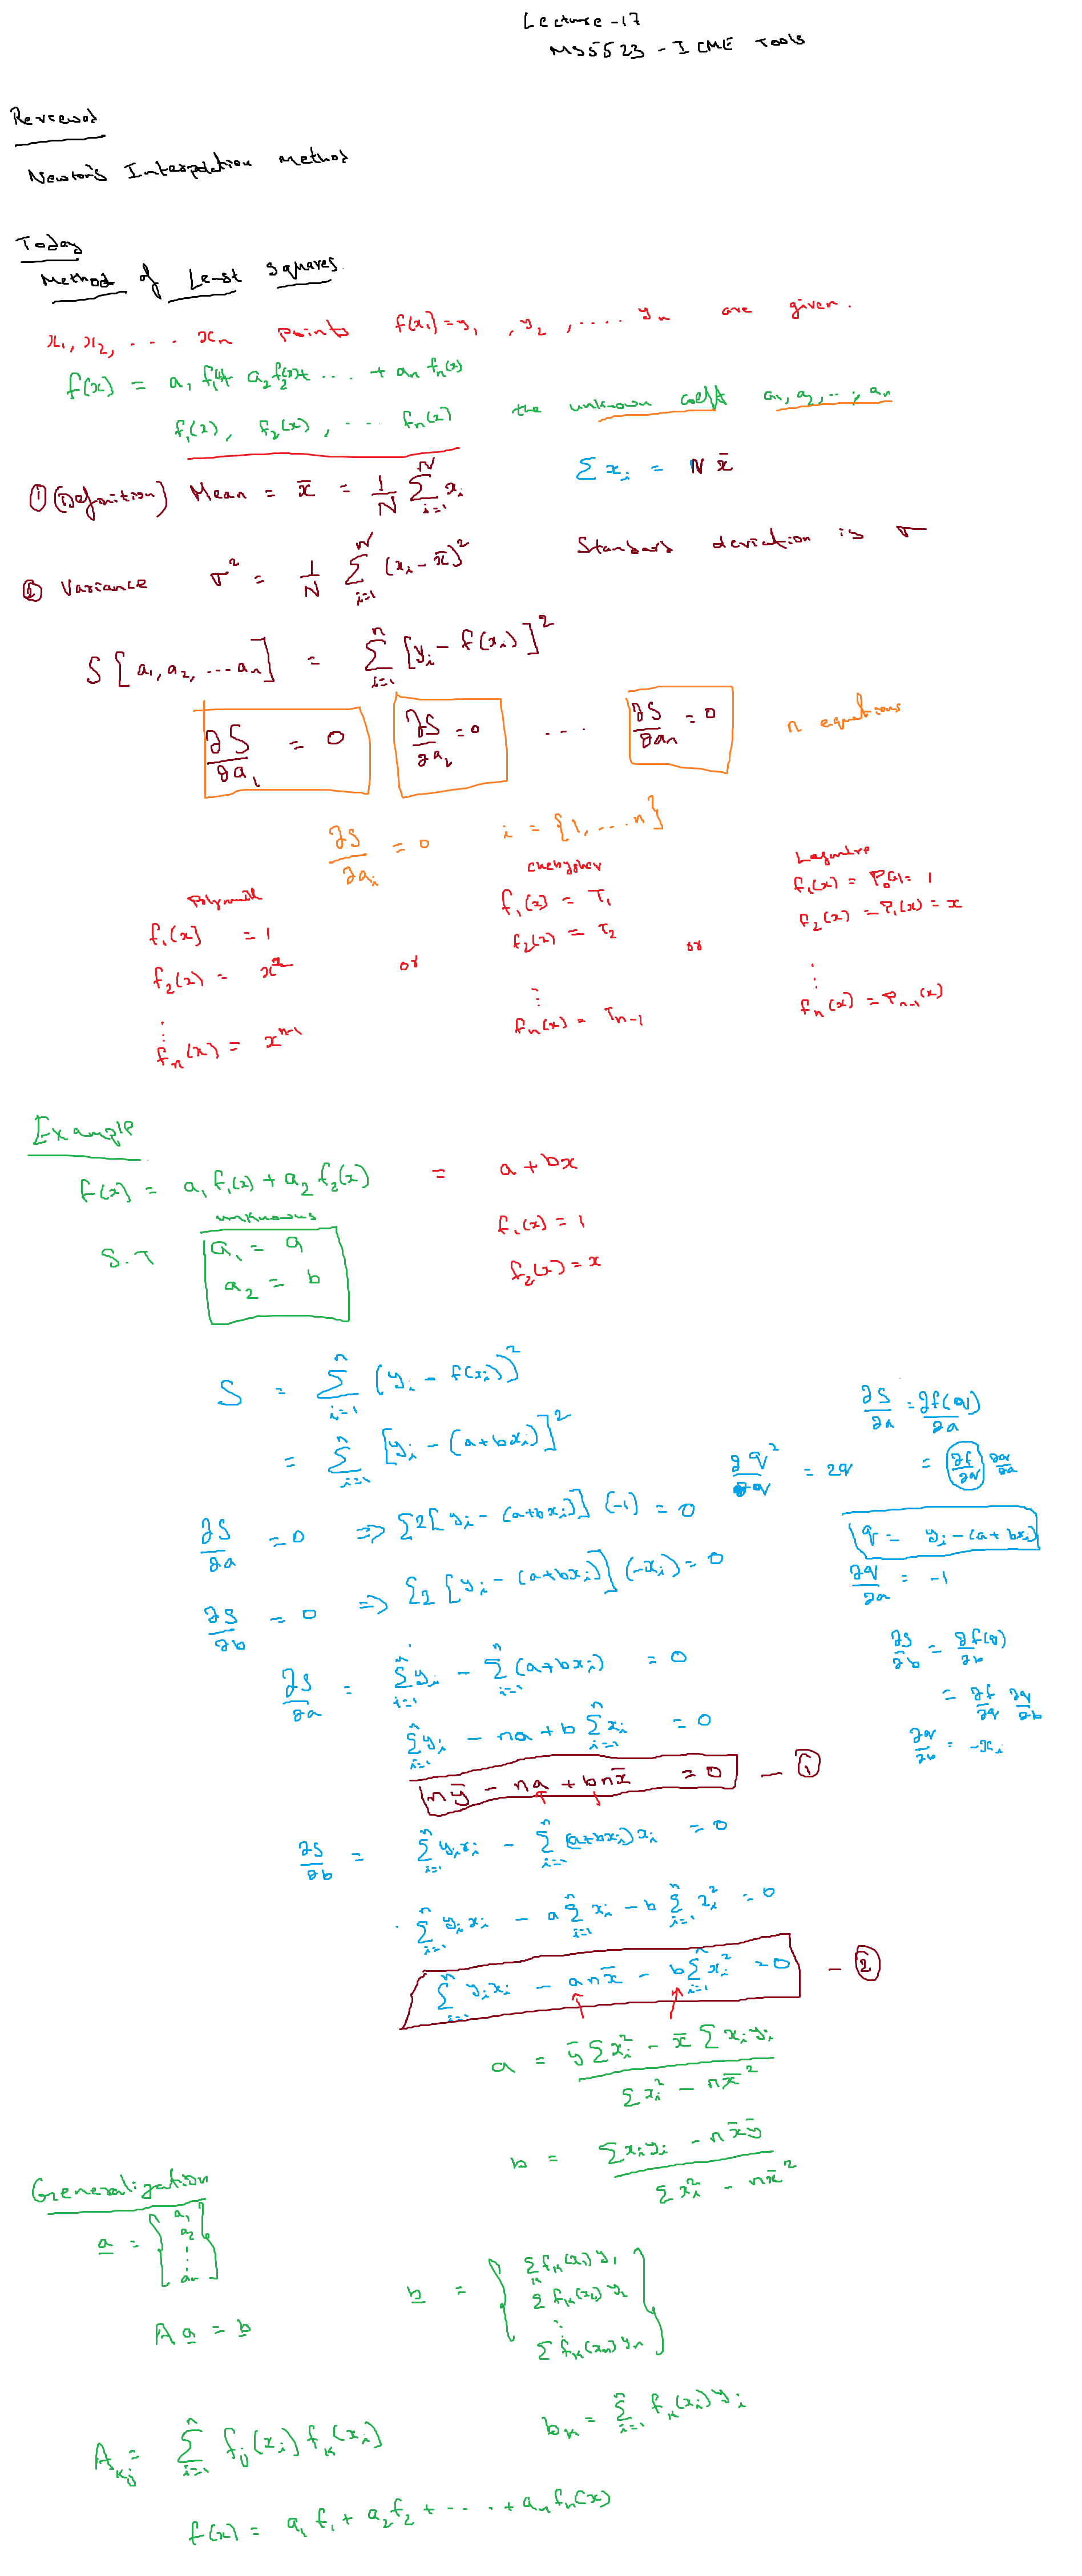 Lecture-17
MS5523 - ICME Tools
Reviewed
Newton's Interpolation Method
Today
Method of Least Squares.
x₁, x₂, ... xₙ points f(x₁) = y₁, y₂, .... yₙ are given.
f(x) = a₁ f₁(x) + a₂ f₂(x) + ... + aₙ fₙ(x)
f₁(x), f₂(x), ... fₙ(x) the unknown coeff a₁, a₂, ..., aₙ
① (Definition) Mean = x̄ = 1/N Σ_{i=1}^{N} xᵢ Σ xᵢ = N x̄
② Variance σ² = 1/N Σ_{i=1}^{N} (xᵢ - x̄)² Standard deviation is σ
S[a₁, a₂, ... aₙ] = Σ_{i=1}^{n} [yᵢ - f(xᵢ)]²
∂S/∂a₁ = 0 ∂S/∂a₂ = 0 ... ∂S/∂aₙ = 0 n equations
∂S/∂aᵢ = 0 i = {1, ... n}
Polynomial Chebyshev Legendre
f₁(x) = 1 f₁(x) = T₁ f₁(x) = P₀(x) = 1
f₂(x) = x or f₂(x) = T₂ or f₂(x) = P₁(x) = x
⋮ ⋮ ⋮
fₙ(x) = xⁿ⁻¹ fₙ(x) = Tₙ₋₁ fₙ(x) = Pₙ₋₁(x)
Example
f(x) = a₁ f₁(x) + a₂ f₂(x) = a + bx
unknowns
S.T a₁ = a f₁(x) = 1
a₂ = b f₂(x) = x
S = Σ_{i=1}^{n} (yᵢ - f(xᵢ))²
= Σ_{i=1}^{n} [yᵢ - (a + bxᵢ)]²
∂S/∂a = 0 ⇒ Σ2[yᵢ - (a + bxᵢ)] (-1) = 0
∂S/∂b = 0 ⇒ Σ2[yᵢ - (a + bxᵢ)] (-xᵢ) = 0
∂q²/∂q = 2q
∂S/∂a = ∂f(q)/∂a
= ∂f/∂q ∂q/∂a
q = yᵢ - (a + bxᵢ)
∂q/∂a = -1
∂S/∂b = ∂f(q)/∂b
= ∂f/∂q ∂q/∂b
∂q/∂b = -xᵢ
∂S/∂a = Σ_{i=1}^{n} yᵢ - Σ_{i=1}^{n} (a + bxᵢ) = 0
Σ_{i=1}^{n} yᵢ - na + b Σ_{i=1}^{n} xᵢ = 0
nȳ - na + bnx̄ = 0 - ①
∂S/∂b = Σ_{i=1}^{n} yᵢxᵢ - Σ_{i=1}^{n} (a + bxᵢ)xᵢ = 0
Σ_{i=1}^{n} yᵢxᵢ - a Σ_{i=1}^{n} xᵢ - b Σ_{i=1}^{n} xᵢ² = 0
Σ_{i=1}^{n} yᵢxᵢ - anx̄ - b Σ_{i=1}^{n} xᵢ² = 0 - ②
a = (ȳ Σxᵢ² - x̄ Σxᵢyᵢ) / (Σxᵢ² - nx̄²)
b = (Σxᵢyᵢ - nx̄ȳ) / (Σxᵢ² - nx̄²)
Generalization
a = {a₁ a₂ ⋮ aₙ}
b = {Σ_k f_k(x₁) y₁ Σ f_k(x₂) y₂ ⋮ Σ f_k(xₙ) yₙ}
A a = b
A_kj = Σ_{i=1}^{n} f_j(xᵢ) f_k(xᵢ) b_k = Σ_{i=1}^{n} f_k(xᵢ) yᵢ
f(x) = a₁ f₁ + a₂ f₂ + .... + aₙ fₙ(x)